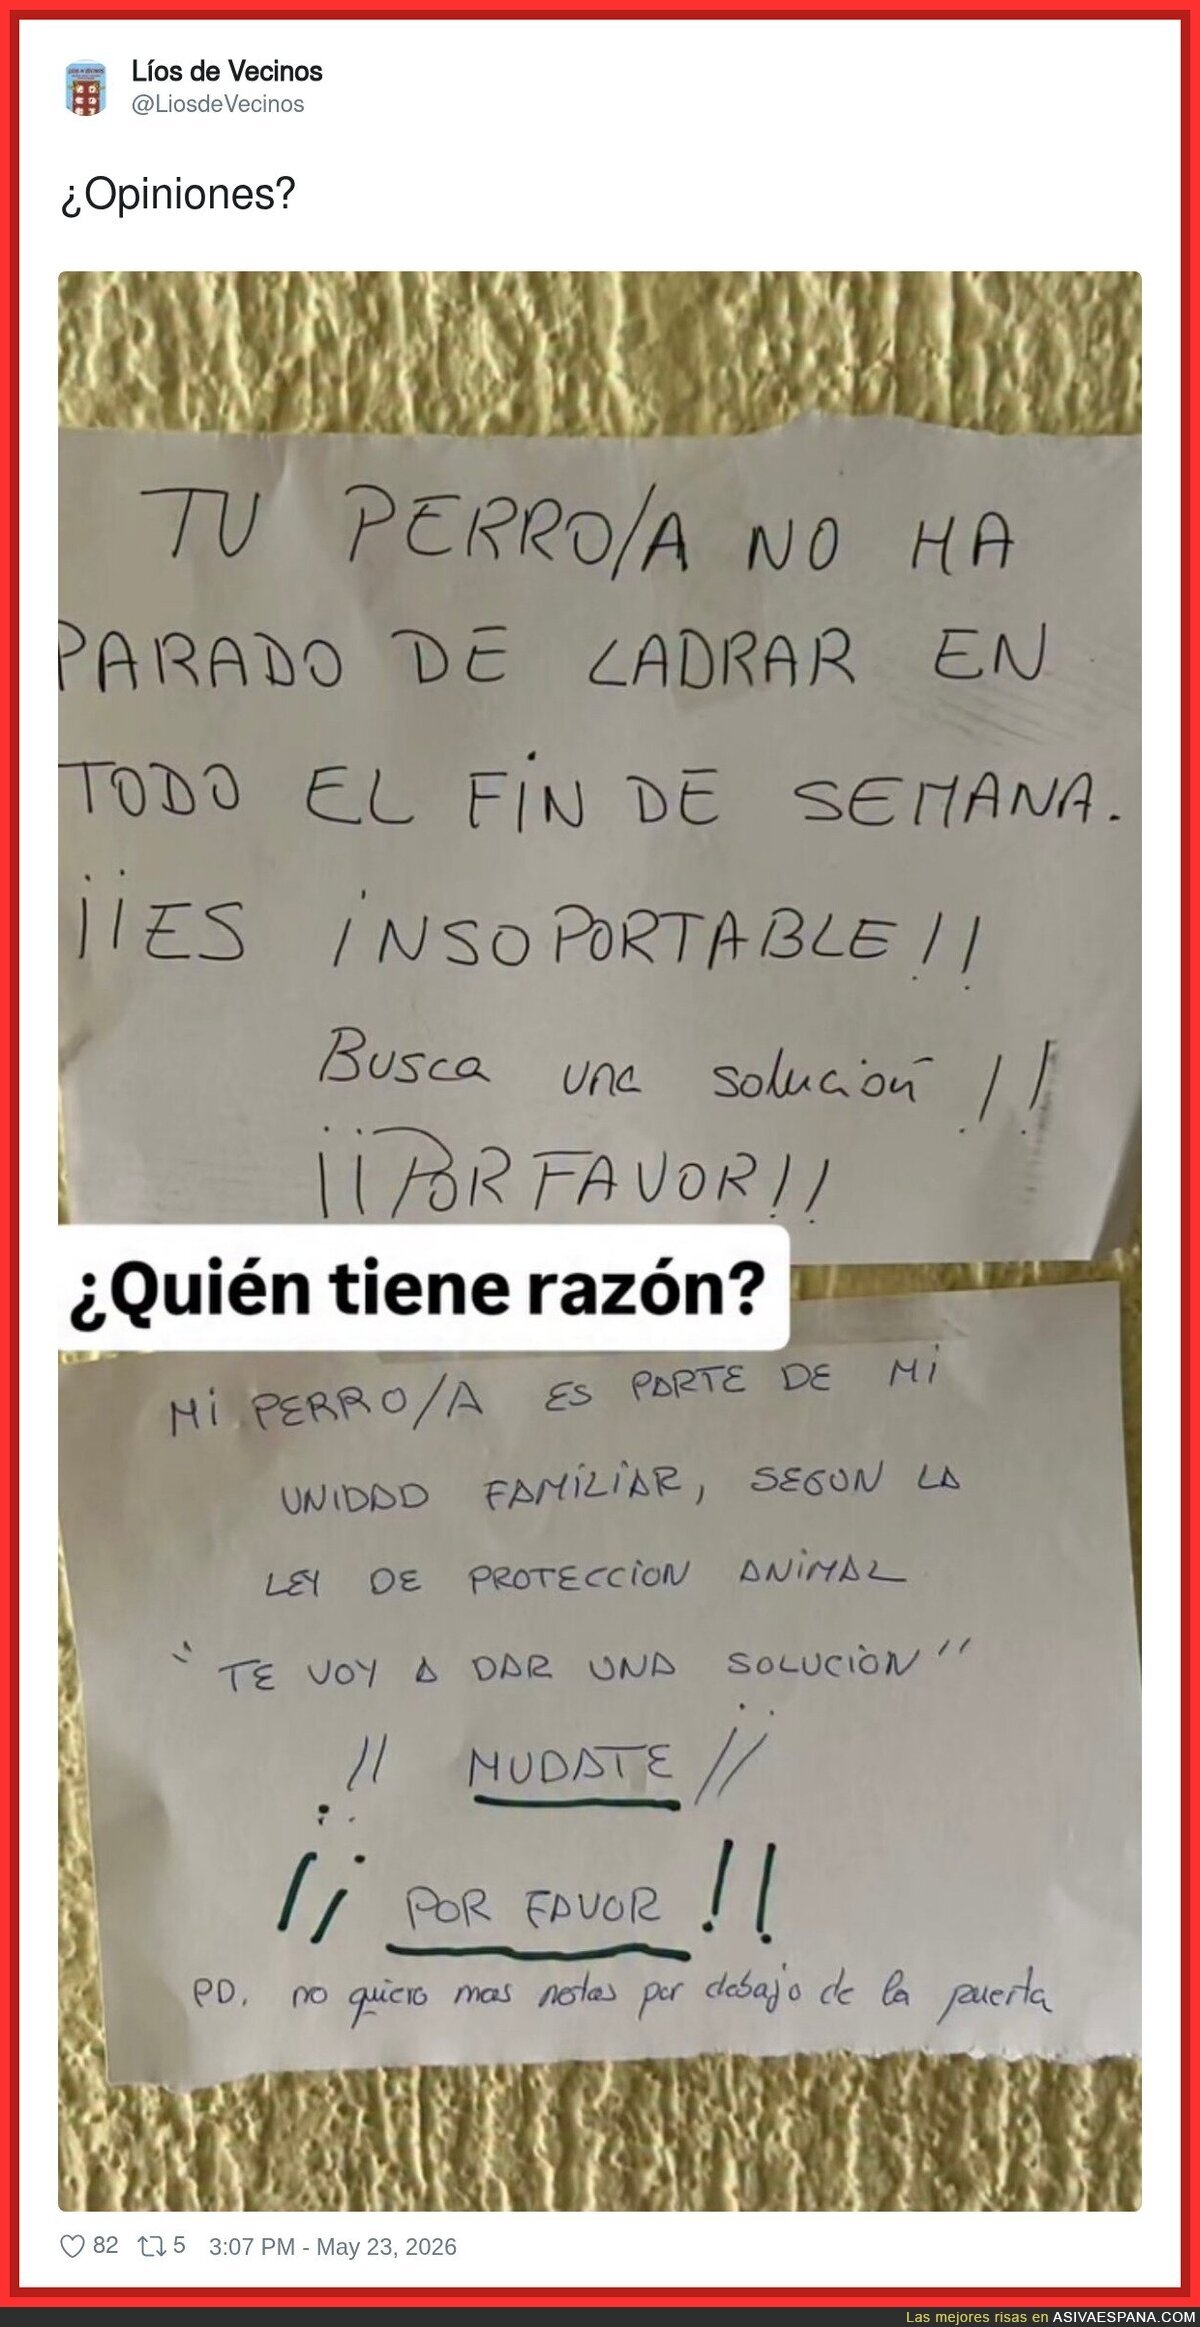 Líos de Vecinos
@LiosdeVecinos
¿Opiniones?
TU PERRO/A NO HA
PARADO DE LADRAR EN
TODO EL FIN DE SEMANA.
¡¡ES INSOPORTABLE!!
Busca una solución!!
¡¡POR FAVOR!!
¿Quién tiene razón?
MI PERRO/A ES PARTE DE MI
UNIDAD FAMILIAR, SEGUN LA
LEY DE PROTECCION ANIMAL
"TE VOY A DAR UNA SOLUCIÒN"
¡¡ MUDATE ¡¡
¡¡ POR FAVOR !!
PD. no quiero mas notas por debajo de la puerta
82 5 3:07 PM - May 23, 2026
Las mejores risas en ASIVAESPANA.COM